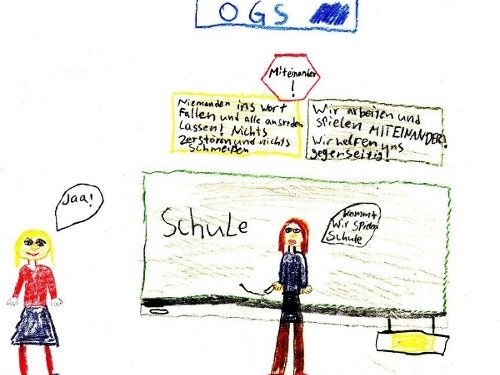 OGS
Miteinander
!
Niemanden ins Wort
Fallen und alle ausreden
Lassen! Nichts
Zerstören und nichts
Schmeißen
Wir arbeiten und
spielen MITEINANDER!
Wir helfen uns
gegenseitig!
Jaa!
Schule
kommt
Wir spielen
Schule